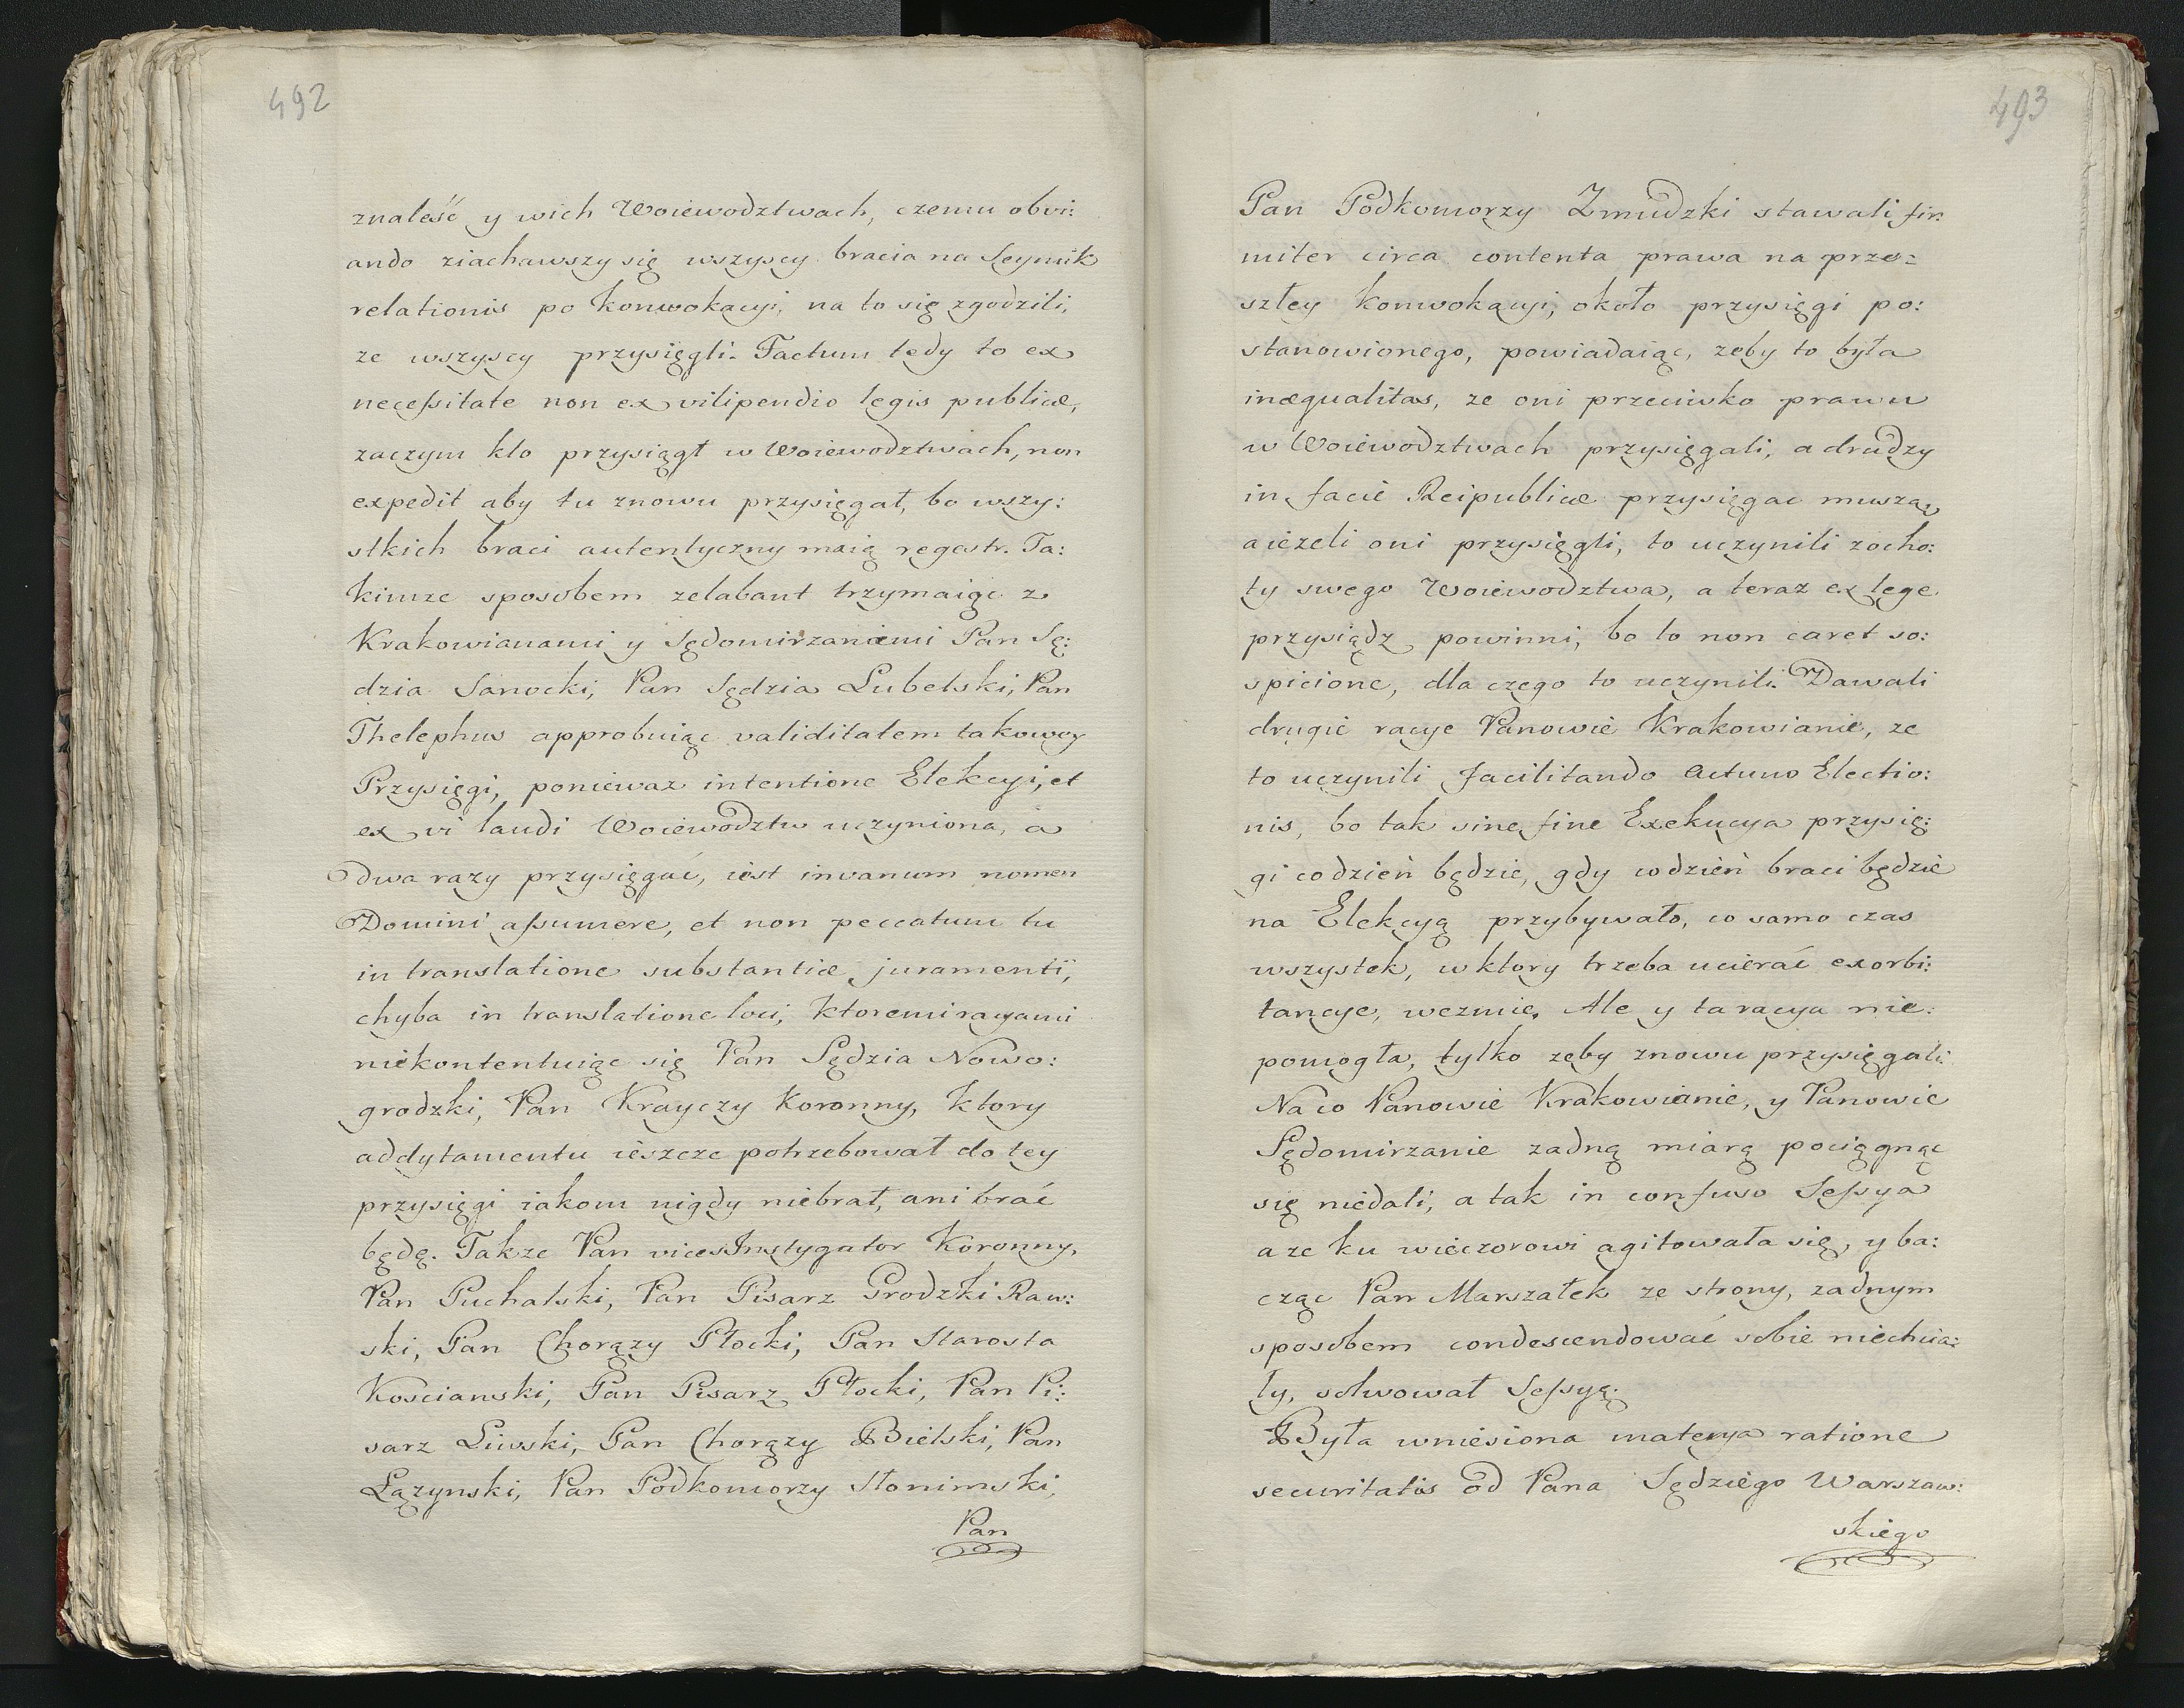 492
znaleść y wich Woiewodztwach, czemu obvi:
ando ziachawszy się wszyscy bracia na Seymik
relationis po konwokacyi, na to się zgodzili,
ze wszyscy przysięgli. Factum tedy to ex
necessitate non ex vilipendio legis publicæ,
zaczym kto przysiągł w Woiewodztwach, non
expedit aby tu znowu przysięgał, bo wszy:
stkich braci autentyczny maią regestr. Ta:
kimze sposobem zelabant trzymaiąc z
Krakowianami y Sędomirzanami Pan Sę:
dzia Sanocki, Pan Sędzia Lubelski, Pan
Thelephus approbuiąc validitatem takowey
Przysięgi, poniewaz intentione Elekcyi, et
ex vi laudi Woiewodztw uczyniona, a
dwa razy przysięgać, iest invanum nomen
Domini assumere, et non peccatum tu
in translatione substantiæ juramenti,
chyba in translatione loci, ktoremi racyami
niekontentuiąc się Pan Sędzia Nowo:
grodzki, Pan Krayczy Koronny, ktory
addytamentu ieszcze potrzebował do tey
przysięgi iakom nigdy niebrał, ani brać
będę. Takze Pan vices Instygator Koronny,
Pan Puchalski, Pan Pisarz Grodzki Raw:
ski, Pan Chorązy Płocki, Pan Starosta
Kościanski, Pan Pisarz Płocki, Pan Pi:
sarz Liwski, Pan Chorązy Bielski, Pan
Łązynski, Pan Podkomorzy Słonimski,
Pan
493
Pan Podkomorzy Zmudzki stawali fir:
miter circa contenta prawa na prze:
szłey konwokacyi, około przysięgi po:
stanowionego, powiadaiąc, zeby to była
inæqualitas, ze oni przeciwko prawu
w Woiewodztwach przysięgali, a drudzy
in facie Reipublicæ przysięgac muszą,
a iezeli oni przysięgli, to uczynili zocho:
ty swego Woiewodztwa, a teraz ex lege
przysiądz powinni, bo to non caret su:
spicione, dla czego to uczynili. Dawali
drugie racye Panowie Krakowianie, ze
to uczynili facilitando Actum Electio:
nis, bo tak sine fine Exekucya przysię:
gi codzień będzie, gdy codzień braci będzie
na Elekcyą przybywało, co samo czas
wszystek, w ktory trzeba ucierać exorbi:
tancye, wezmie. Ale y ta racya nie:
pomogła, tylko zeby znowu przysięgali:
Na co Panowie Krakowianie, y Panowie
Sędomirzanie zadną miarą pociągnąc
się niedali, a tak in confuso Sessya
aze ku wieczorowi agitowała się, y ba:
cząc Pan Marszałek ze strony, zadnym
sposobem condescendować sobie niechcia:
ły, solwował Sessyą.
Była wniesiona materya ratione
securitatis od Pana Sędziego Warszaw:
skiego